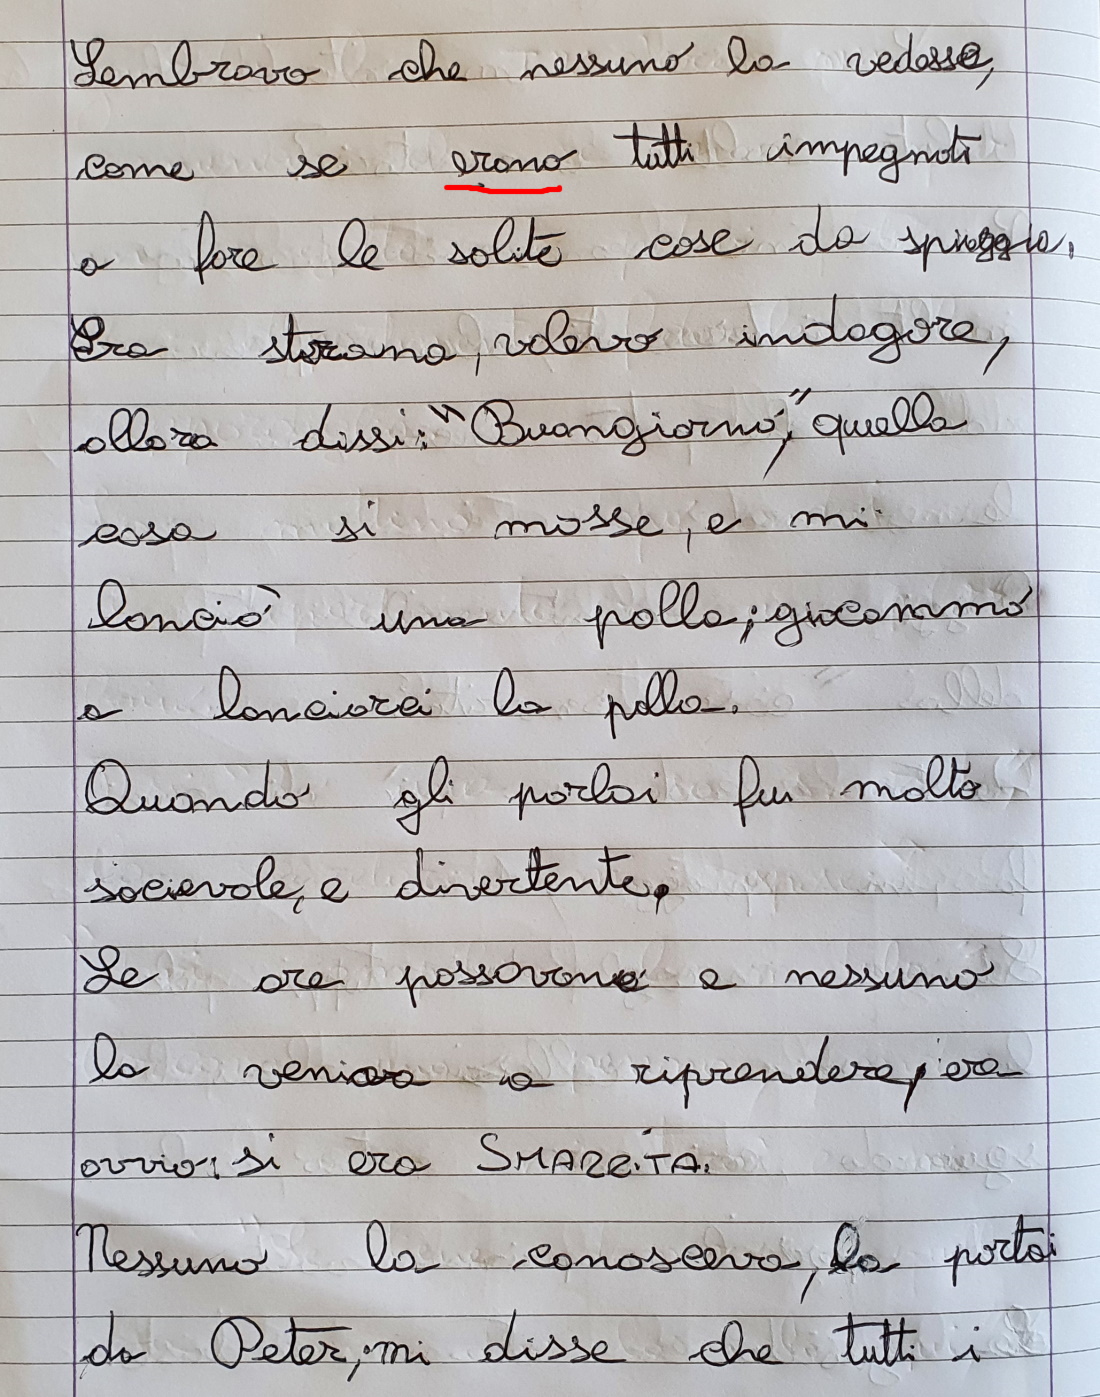 Sembrava che nessuno la vedesse,
come se erano tutti impegnati
a fare le solite cose da spiaggia.
Era strana, volevo indagare,
allora dissi: "Buongiorno", quella
cosa si mosse, e mi
lanciò una palla; giocammo
a lanciarci la palla.
Quando gli parlai fu molto
socievole, e divertente.
Le ore passavano e nessuno
la veniva a riprendere, era
ovvio: si era SMARRITA.
Nessuno la conosceva, la portai
da Peter, mi disse che tutti i